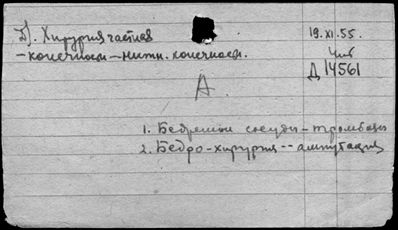 Д). Хирургия частная
– конечности – нижн. конечност.
19.XI.55.
Д 14561
А.
1. Бедренные сосуды – тромбоз
2. Бедро – хирургия -- ампутация